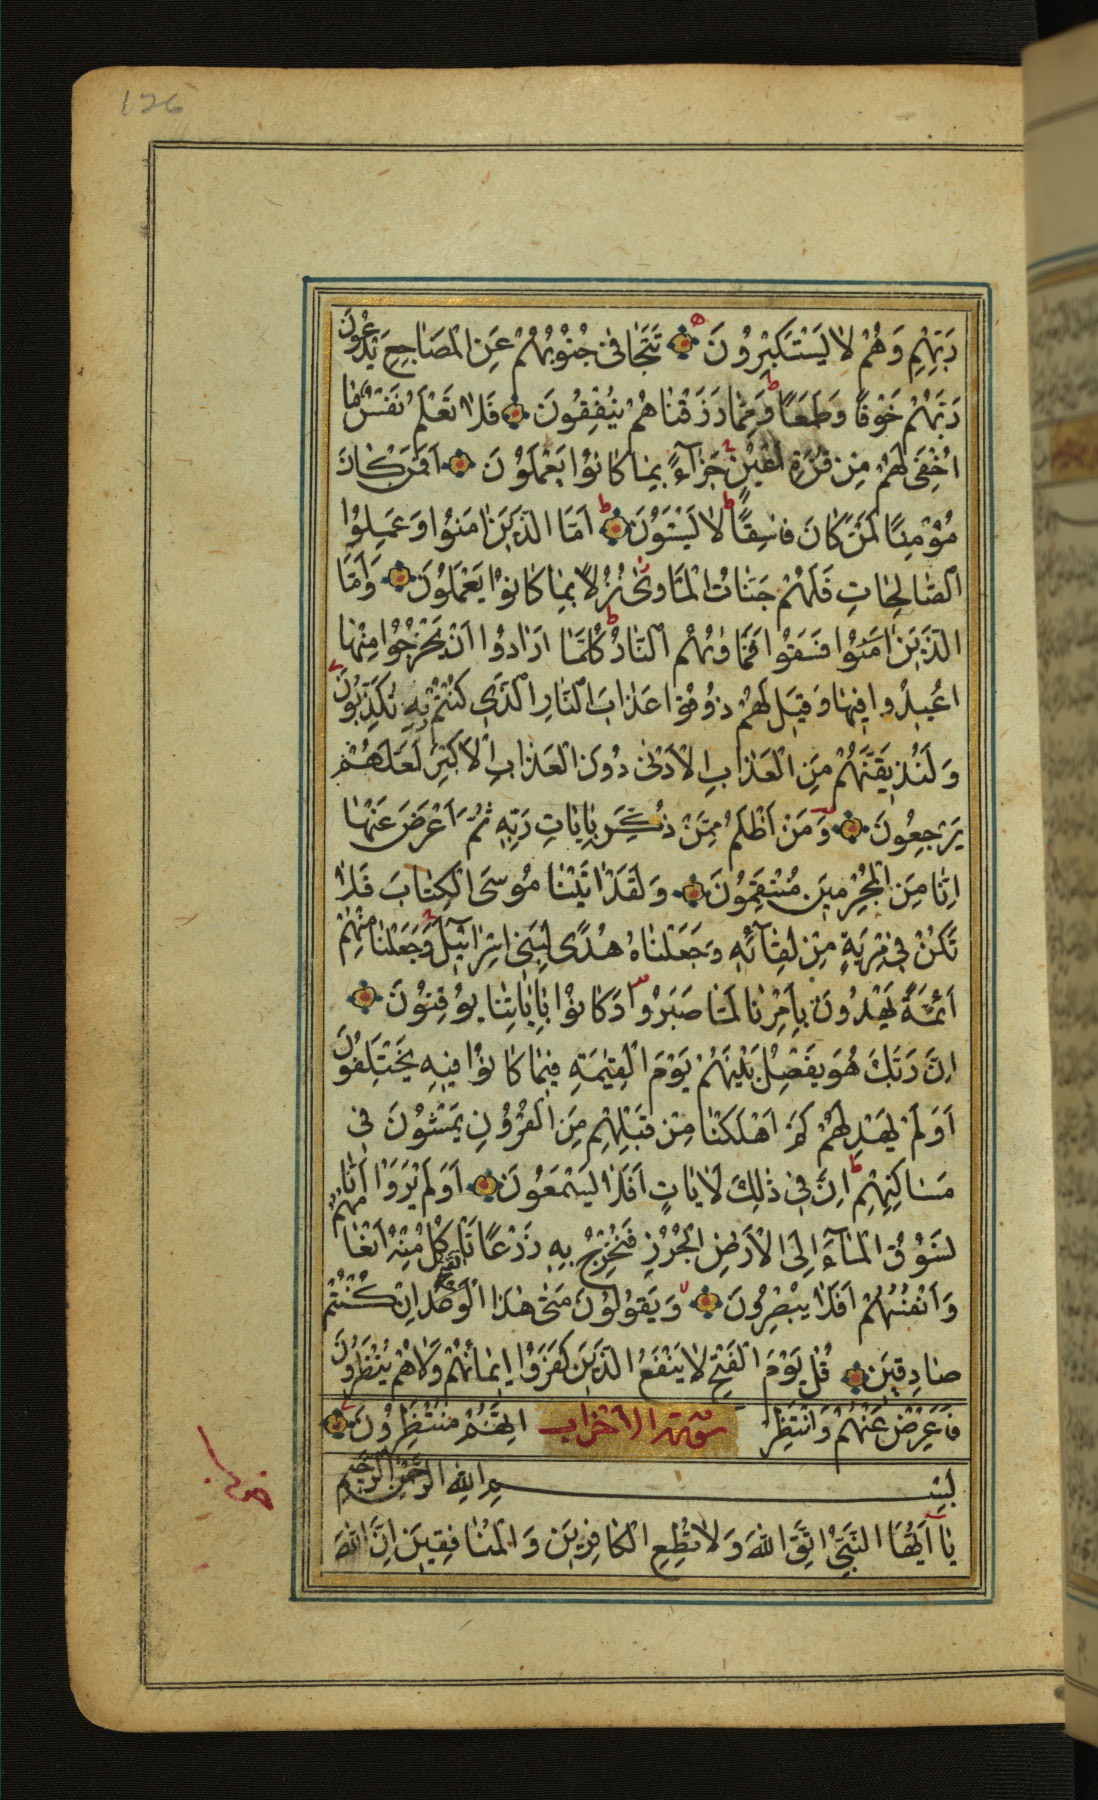 126
رَبِّهِمْ وَهُمْ لَا يَسْتَكْبِرُونَ تَتَجَافٰى جُنُوبُهُمْ عَنِ الْمَضَاجِعِ يَدْعُونَ
رَبَّهُمْ خَوْفًا وَطَمَعًا وَمِمَّا رَزَقْنَاهُمْ يُنْفِقُونَ فَلَا تَعْلَمُ نَفْسٌ مَا
اُخْفِىَ لَهُمْ مِنْ قُرَّةِ اَعْيُنٍ جَزَآءً بِمَا كَانُوا يَعْمَلُونَ اَفَمَنْ كَانَ
مُؤْمِنًا كَمَنْ كَانَ فَاسِقًا لَا يَسْتَوُنَ اَمَّا الَّذِينَ اٰمَنُوا وَعَمِلُوا
الصَّالِحَاتِ فَلَهُمْ جَنَّاتُ الْمَاْوٰى نُزُلًا بِمَا كَانُوا يَعْمَلُونَ وَاَمَّا
الَّذِينَ امَنُوا فَسَقُوا فَمَاْوٰيهُمُ النَّارُ كُلَّمَا اَرَادُوا اَنْ يَخْرُجُوا مِنْهَا
اُعِيدُوا فِيهَا وَقِيلَ لَهُمْ ذُوقُوا عَذَابَ النَّارِ الَّذِى كُنْتُمْ بِهِ تُكَذِّبُونَ
وَلَنُذِيقَنَّهُمْ مِنَ الْعَذَابِ الْاَدْنٰى دُونَ الْعَذَابِ الْاَكْبَرِ لَعَلَّهُمْ
يَرْجِعُونَ وَمَنْ اَظْلَمُ مِمَّنْ ذُكِّرَ بِاٰيَاتِ رَبِّهِ ثُمَّ اَعْرَضَ عَنْهَا
اِنَّا مِنَ الْمُجْرِمِينَ مُنْتَقِمُونَ وَلَقَدْ اٰتَيْنَا مُوسَى الْكِتَابَ فَلَا
تَكُنْ فِى مِرْيَةٍ مِنْ لِقَآئِهِ وَجَعَلْنَاهُ هُدًى لِبَنِى اِسْرَائِيلَ وَجَعَلْنَا مِنْهُمْ
اَئِمَّةً يَهْدُونَ بِاَمْرِنَا لَمَّا صَبَرُوا وَكَانُوا بِاٰيَاتِنَا يُوقِنُونَ
اِنَّ رَبَّكَ هُوَ يَفْصِلُ بَيْنَهُمْ يَوْمَ الْقِيٰمَةِ فِيمَا كَانُوا فِيهِ يَخْتَلِفُونَ
اَوَلَمْ يَهْدِ لَهُمْ كَمْ اَهْلَكْنَا مِنْ قَبْلِهِمْ مِنَ الْقُرُونِ يَمْشُونَ فِى
مَسَاكِنِهِمْ اِنَّ فِى ذٰلِكَ لَاٰيَاتٍ اَفَلَا يَسْمَعُونَ اَوَلَمْ يَرَوْا اَنَّا
نَسُوقُ الْمَآءَ اِلَى الْاَرْضِ الْجُرُزِ فَنُخْرِجُ بِهِ زَرْعًا تَاْكُلُ مِنْهُ اَنْعَامُهُمْ
وَاَنْفُسُهُمْ اَفَلَا يُبْصِرُونَ وَيَقُولُونَ مَتٰى هٰذَا الْوَعْدُ الفتح اِنْ كُنْتُمْ
صَادِقِينَ قُلْ يَوْمَ الْفَتْحِ لَا يَنْفَعُ الَّذِينَ كَفَرُوا اِيمَانُهُمْ وَلَا هُمْ يُنْظَرُونَ
فَاَعْرِضْ عَنْهُمْ وَانْتَظِرْ سورة الاحزاب اِنَّهُمْ مُنْتَظِرُونَ
بسم الله الرحمن الرحيم
يَا اَيُّهَا النَّبِىُّ اتَّقِ اللّٰهَ وَلَا تُطِعِ الْكَافِرِينَ وَالْمُنَافِقِينَ اِنَّ اللّٰهَ